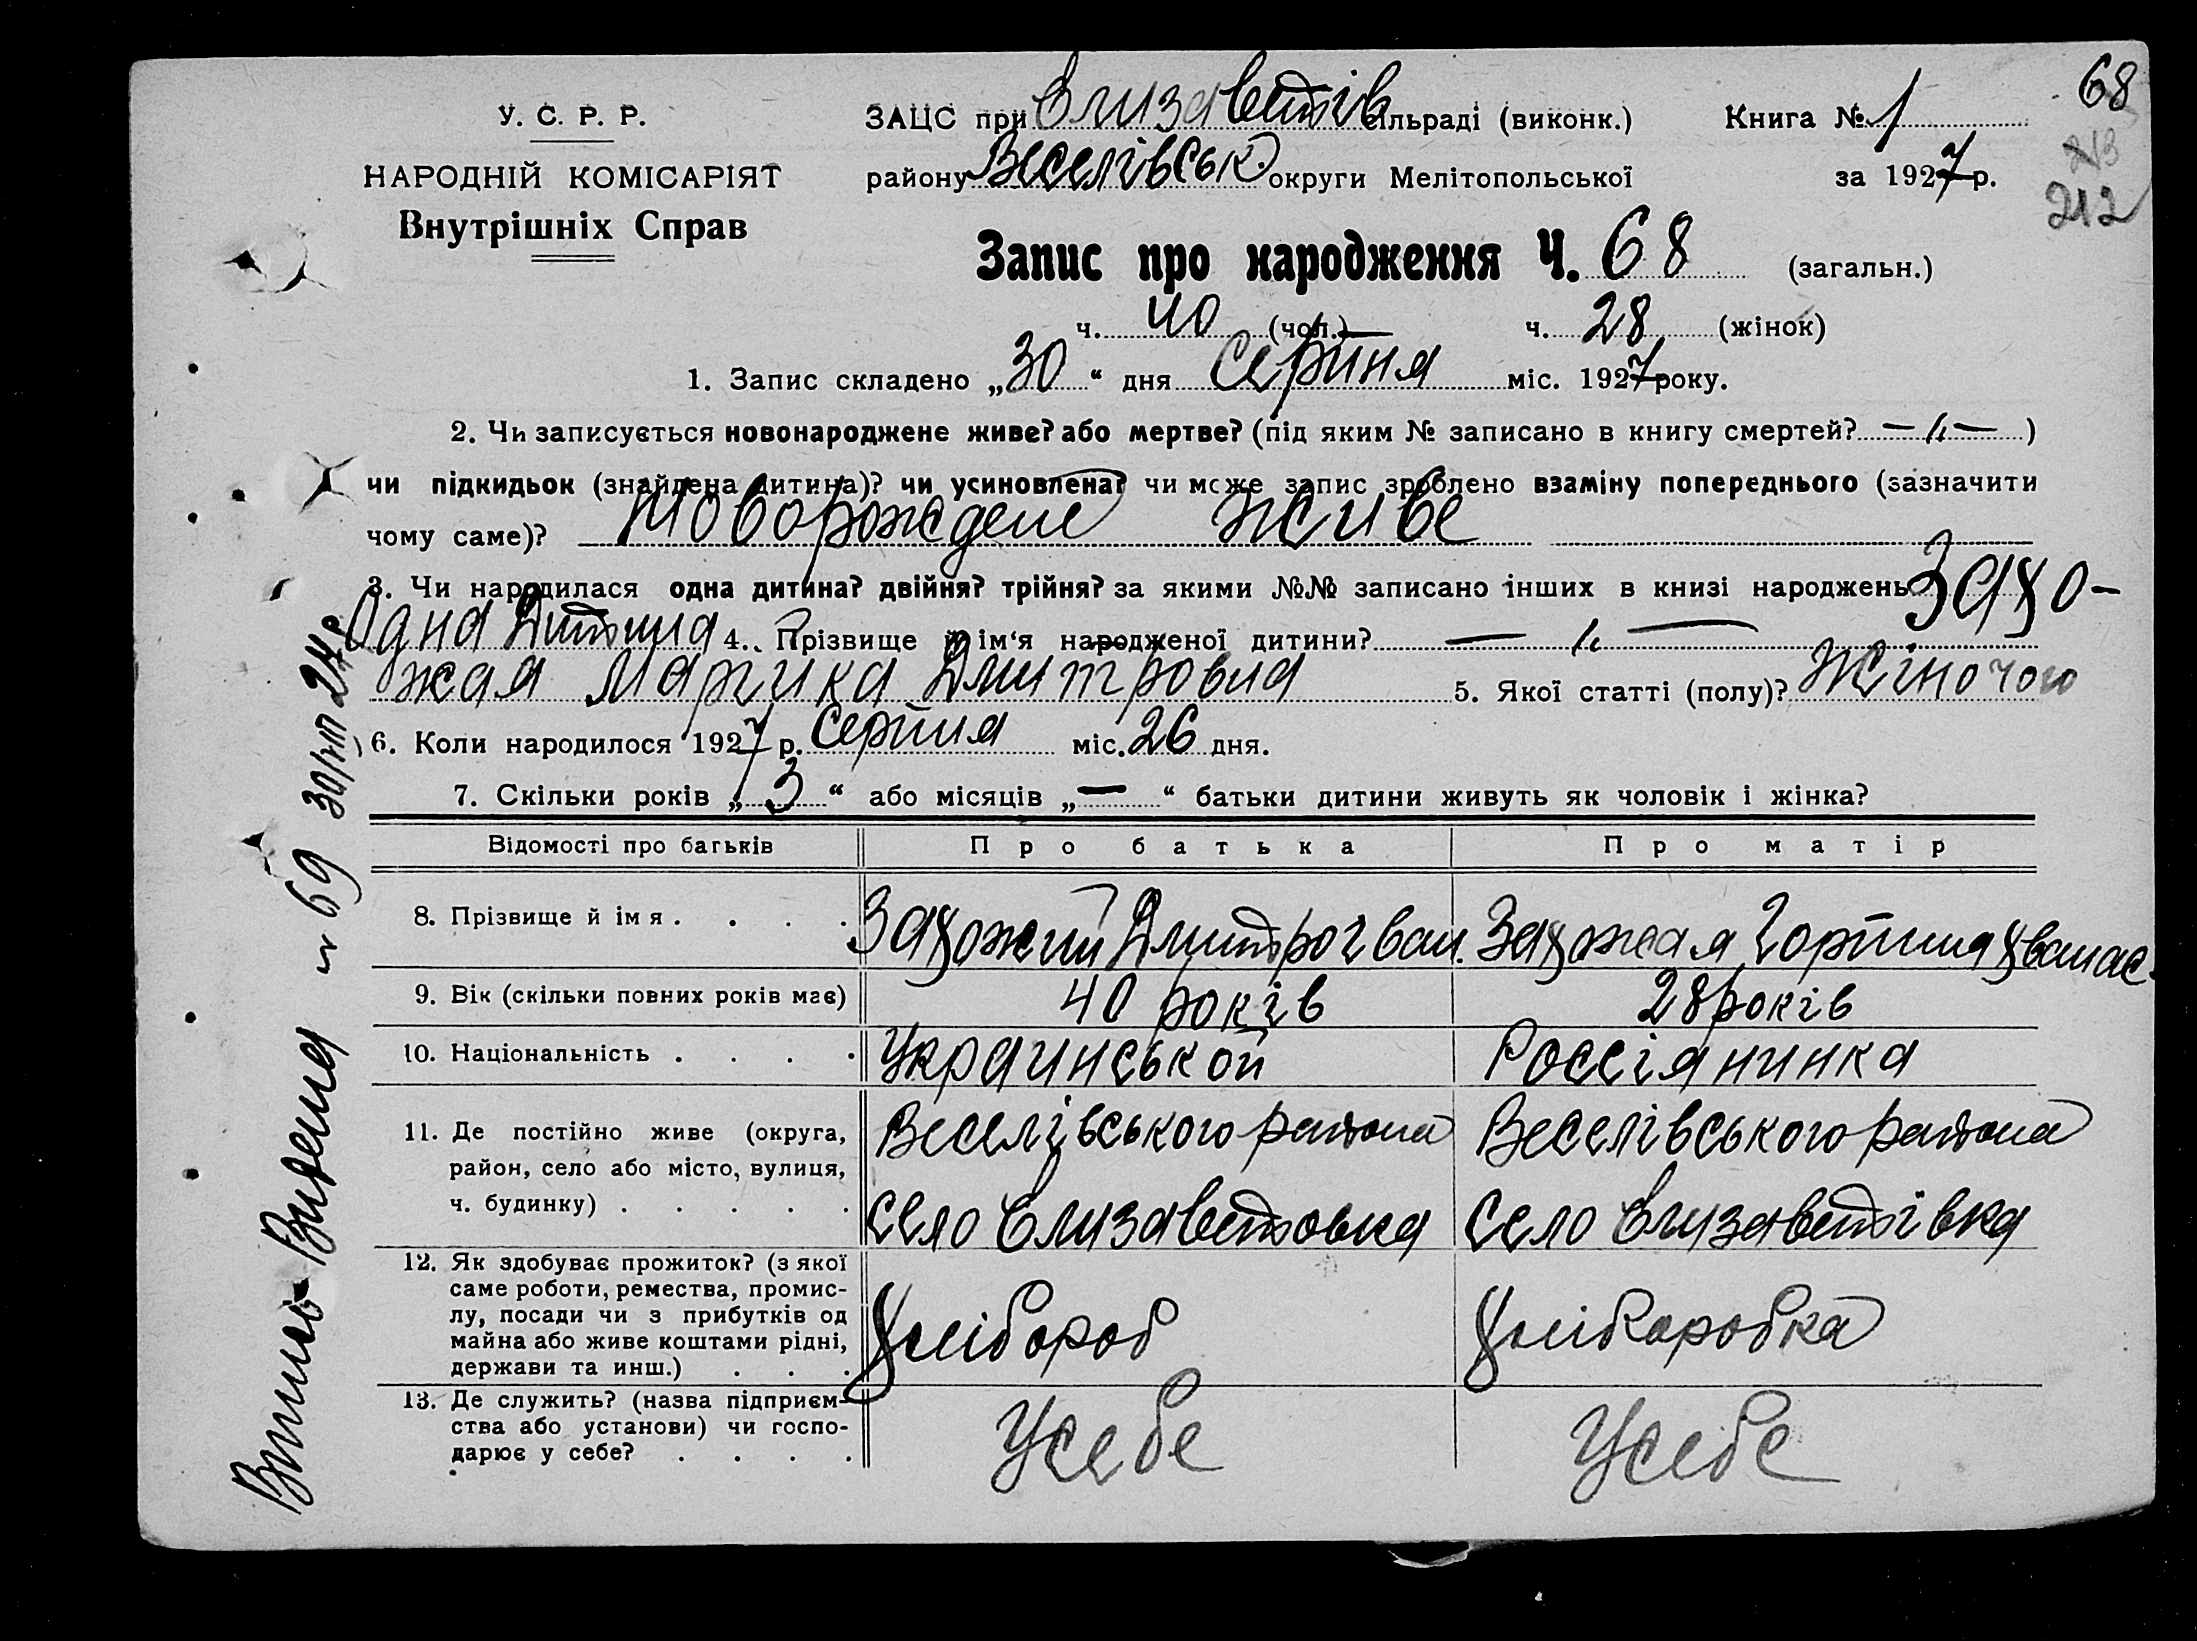 68
У. С. Р. Р.
ЗАЦС при Елизаветів сільраді (виконк.) Книга № 1
НАРОДНІЙ КОМІСАРІЯТ
району Веселівськ. округи Мелітопольської за 1927 р.
212
Внутрішніх Справ
Запис про народження Ч. 68 (загальн.)
ч. 40 (чол.) ч. 28 (жінок)
1. Запис складено „30“ дня серпня міс. 1927 року.
2. Чи записується новонароджене живе? або мертве? (під яким № записано в книгу смертей? —„— )
чи підкидьок (знайдена дитина)? чи усиновлена? чи може запис зроблено взаміну попереднього (зазначити
чому саме)? живе
3. Чи народилася одна дитина? двійня? трійня? за якими №№ записано інших в книзі народжень Захо-
Одна Дитина 4. Прізвище й ім‘я народженої дитини? — „ —
жая Марика Дмитровна 5. Якої статті (полу)? Жіночого
6. Коли народилося 1927 р. серпня міс. 26 дня.
7. Скільки років „3“ або місяців „—“ батьки дитини живуть як чоловік і жінка?
Відомості про батьків Про батька Про матір
8. Прізвище й імя . . . . Захожий Дмитро Іван. Захожая Горпина
9. Вік (скільки повних років має) 40 років 28 років
10. Національність . . . . Украинськой Россіянинка
11. Де постійно живе (округа, Веселівського района Веселівського района
район, село або місто, вулиця,
ч. будинку) . . . . . село Елизаветовка село Елизаветівка
12. Як здобуває прожиток? (з якої
саме роботи, ремества, промис-
лу, посади чи з прибутків од
майна або живе коштами рідні,
держави та инш.) . . .
13. Де служить? (назва підприєм-
ства або установи) чи госпо- Усебе Усебе
дарює у себе? . . . .
69 30/VIII 27 р.